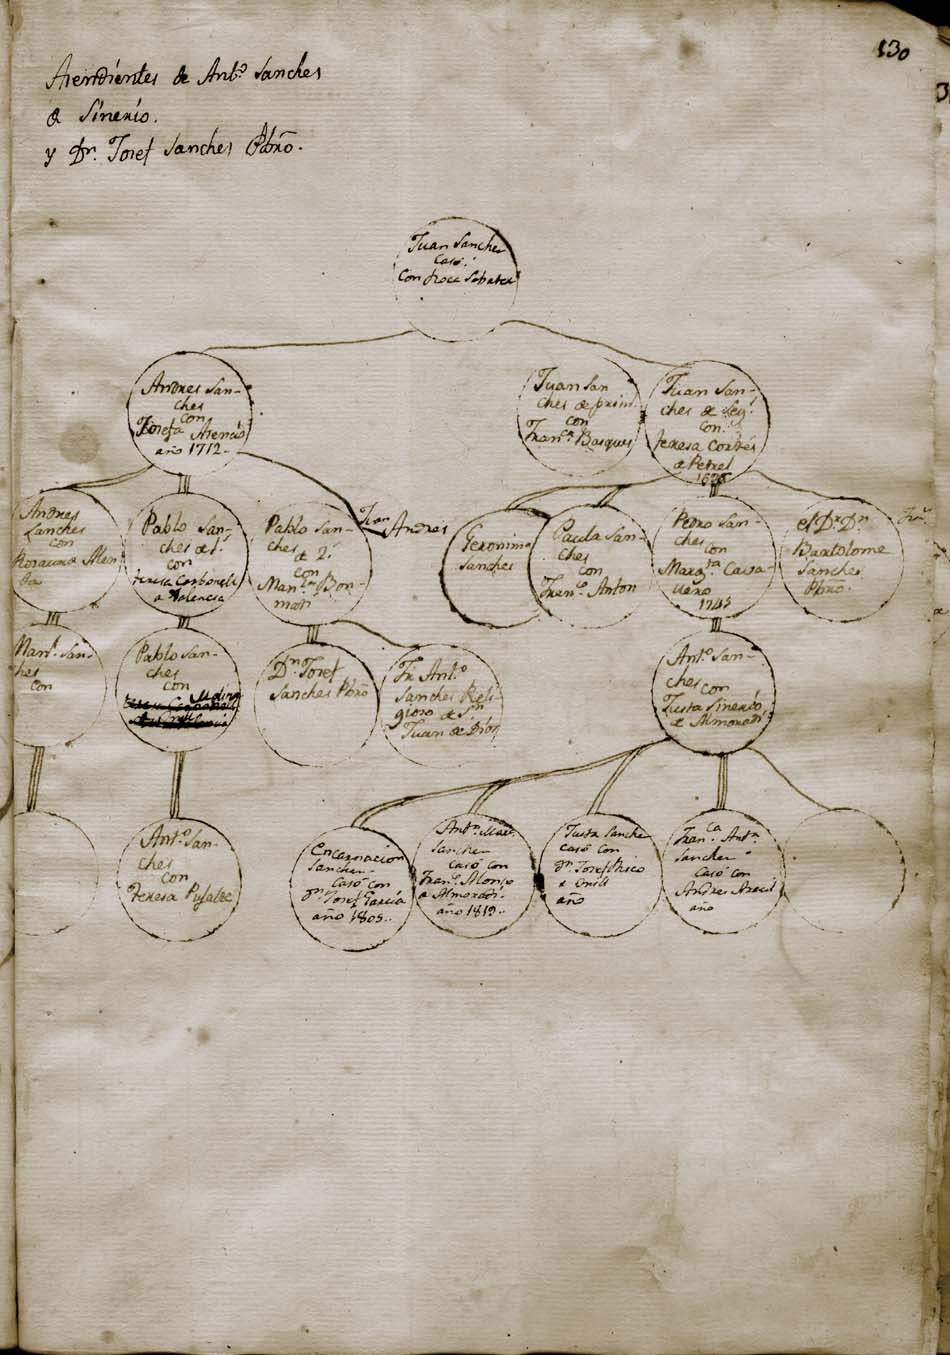 130
Asendientes de Antº Sanches
de Sinerio.
y Dr. Josef Sanches Pbrõ.
Juan Sanches
Casó
Con Roca Sabater
Andres San-
ches
con
Josefa Asencio
año 1712-
Juan San
ches de prim.
con
Franca. Basques
Juan San-
ches de seg.
con
teresa Cortés
de Petrel
Andres
Sanches
con
Pablo San-
ches de 1.
con
teresa Carbonell
a Valencia
Pablo San-
ches de 2.
con
Man.la Bon-
mati
Juan
Andres
Geronima
Sanches
Paula San-
ches
con
Franco. Anton
Pedro San-
ches con
Marg.ta
1745
el Dr. Dn
Bartolome
Sanches
Pbrõ.
Man.l San-
ches
con
Pablo San-
ches
con
Molina
Dn Josef
Sanches Pbrõ
Fr. Antº
Sanches Reli-
gioso de Sn
Juan de Dios
Antº San-
ches con
Justa Sinerio
de Almoradi
Antº San-
ches
con
Teresa Pujalte
Encarnacion
Sanches
Casó con
Dn. Josef Garcia
año 1805..
Sanches
casó con
Franco. Alonso
a Almoradi
año 1819..
Justa Sanches
casó con
Dn. Josef Rico
año
Fran.ca Anta.
Sanches
casó con
Andres
año